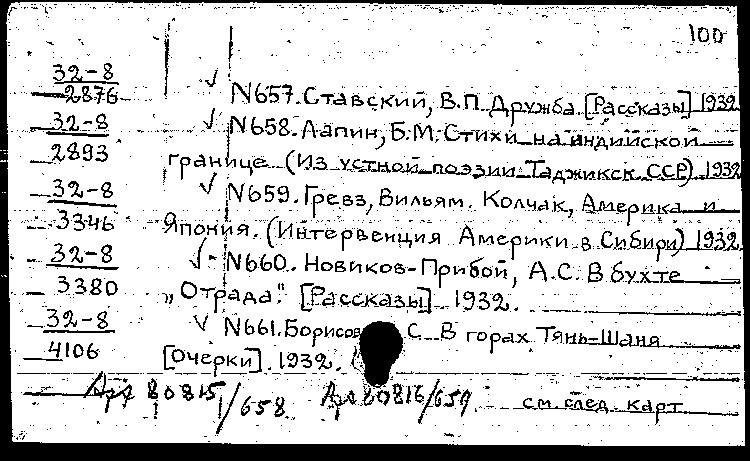 100
32-8
2876 N657. Ставский, В.П. Дружба. [Рассказы] 1932
32-8 N658. Лапин, Б.М. Стихи на индийской
2893 границе (Из устной поэзии Таджикск. ССР) 1932
32-8 N659. Гревз, Вильям. Колчак, Америка и
3346 Япония. (Интервенция Америки в Сибири) 1932
32-8 N660. Новиков-Прибой, А.С. В бухте
3380 „Отрада". [Рассказы] 1932.
32-8 N661. Борисов С. В горах Тянь-Шаня
4106 [Очерки]. 1932.
80815/658 80816/659 см. след. карт